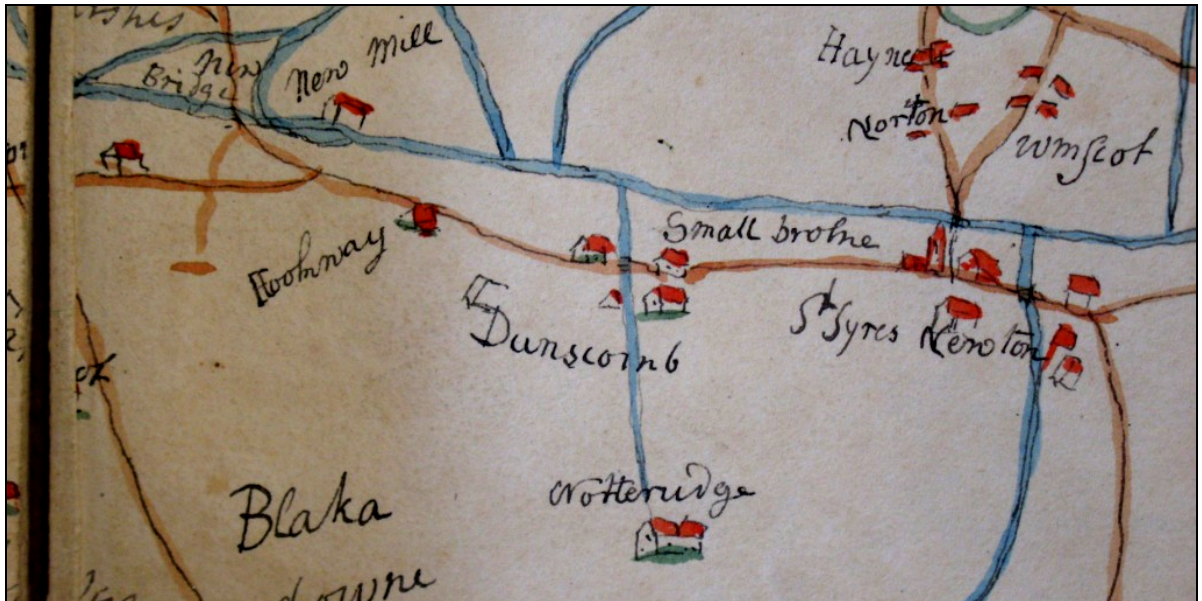 New
Bridge
New Mill
Hayne
Norton
Wmscot
Small brohne
Dunscomb
St Syres Newton
Notterudge
Blaka
downe